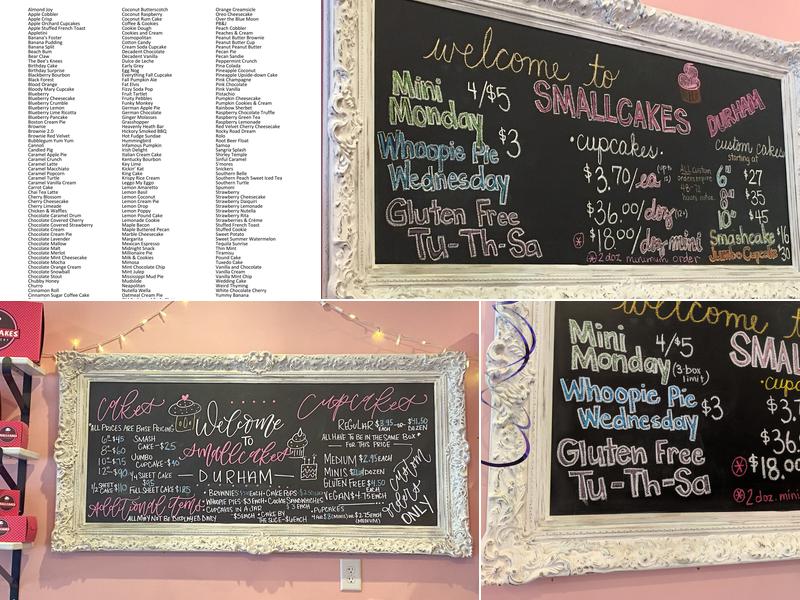 Almond Joy
Apple Cobbler
Apple Crisp
Apple Orchard Cupcakes
Apple Stuffed French Toast
Appletini
Banana's Foster
Banana Pudding
Banana Split
Beach Bum
Bear Claw
The Bee's Knees
Birthday Cake
Birthday Surprise
Blackberry Bourbon
Black Forest
Blood Orange
Bloody Mary Cupcake
Blueberry
Blueberry Cheesecake
Blueberry Crumble
Blueberry Lemon
Blueberry Lime Ricotta
Blueberry Pancake
Boston Cream Pie
Brownie
Brownie 2.0
Brownie Red Velvet
Bubblegum Yum Yum
Cannoli
Candied Pig
Caramel Apple Pie
Caramel Crunch
Caramel Latte
Caramel Macchiato
Caramel Popcorn
Caramel Turtle
Caramel Vanilla Cream
Carrot Cake
Chai Tea Latte
Cherry Blossom
Cherry Cheesecake
Cherry Limeade
Chicken & Waffles
Chocolate Caramel Drum
Chocolate Covered Cherry
Chocolate Covered Strawberry
Chocolate Cream
Chocolate Cream Pie
Chocolate Lavender
Chocolate Mallow
Chocolate Malt
Chocolate Merlot
Chocolate Mint Cheesecake
Chocolate Mocha
Chocolate Orange Cream
Chocolate Snowball
Chocolate Stout
Chubby Honey
Churro
Cinnamon Roll
Cinnamon Sugar Coffee Cake
Coconut Butterscotch
Coconut Raspberry
Coconut Rum Cake
Coffee & Cookies
Cookie Dough
Cookies and Cream
Cosmopolitan
Cotton Candy
Cream Soda Cupcake
Decadent Chocolate
Decadent Vanilla
Dulce de Leche
Early Grey
Egg Nog
Everything Fall Cupcake
Fall Pumpkin Ale
Fat Elvis
Fizzy Soda Pop
Fruit Tartlet
Fruity Pebbles
Funky Monkey
German Apple Pie
German Chocolate
Ginger Molasses
Grasshopper
Heavenly Heath Bar
Hickory Smoked BBQ
Hot Fudge Sundae
Hummingbird
Infamous Pumpkin
Irish Delight
Italian Cream Cake
Kentucky Bourbon
Key Lime
Kickin' Kat
King Cake
Krispy Rice Cream
Leggo My Eggo
Lemon Amaretto
Lemon Basil
Lemon Coconut
Lemon Cream Pie
Lemon Drop
Lemon Poppy
Lemon Pound Cake
Lemonade Cookie
Maple Bacon
Maple Buttered Pecan
Marble Cheesecake
Margarita
Mexican Espresso
Midnight Snack
Millionaire Pie
Milk & Cookies
Mimosa
Mint Chocolate Chip
Mint Julep
Mississippi Mud Pie
Mudslide
Neapolitan
Nutella Wella
Oatmeal Cream Pie
Orange Creamsicle
Oreo Cheesecake
Over the Blue Moon
PB&J
Peach Cobbler
Peaches & Cream
Peanut Butter Brownie
Peanut Butter Cup
Peanut Peanut Butter
Pecan Pie
Pecan Sandie
Peppermint Crunch
Pina Colada
Pineapple Coconut
Pineapple Upside-down Cake
Pink Champagne
Pink Chocolate
Pink Vanilla
Pistachio
Pumpkin Cheesecake
Pumpkin Cookies & Cream
Rainbow Sherbet
Raspberry Chocolate Truffle
Raspberry Green Tea
Raspberry Lemonade
Red Velvet Cherry Cheesecake
Rocky Road Dream
Rolo
Root Beer Float
Samoa
Sangria Splash
Shirley Temple
Sinful Caramel
S'mores
Snickers
Southern Belle
Southern Peach Sweet Iced Tea
Southern Turtle
Spumoni
Strawberry
Strawberry Cheesecake
Strawberry Daquiri
Strawberry Lemonade
Strawberry Nutella
Strawberry Rita
Strawberries & Crème
Stuffed French Toast
Stuffed Cookie
Sweet Potato
Sweet Summer Watermelon
Tequila Sunrise
Thin Mint
Tiramisu
Pound Cake
Tuxedo Cake
Vanilla and Chocolate
Vanilla Cream
Vanilla Mint Chip
Wedding Cake
Weird Thyming
White Chocolate Cherry
Yummy Banana
welcome to
SMALLCAKES
DURHAM
Mini 4/$5
Monday
Whoopie Pie $3
Wednesday
Gluten Free
Tu-Th-Sa
cupcakes
$3.70/ea
$36.00/doz (12)
$18.00/doz mini
* 2 doz minimum order
ALL custom
orders require
48-72
hours notice
custom cakes
starting at
6" $27
8" $35
10" $45
Smashcake $16
Jumbo Cupcake $30
CAKES
Cakes
*ALL PRICES ARE BASE PRICING
6"-$45
8"-$60
10"-$75
12"-$90
1/2 SHEET CAKE $110
SMASH CAKE-$25
JUMBO CUPCAKE-$40
1/4 SHEET CAKE
FULL SHEET CAKE $185
Welcome
TO
Smallcakes
DURHAM
Cupcakes
REGULAR $3.95 EACH OR $41.50 DOZEN
ALL HAVE TO BE IN THE SAME BOX
FOR THIS PRICE
MEDIUM $2.95 EACH
MINIS DOZEN
GLUTEN FREE $4.50 EACH
VEGAN $4.75 EACH
Custom
Orders
ONLY
Additional Items
ALL MAY NOT BE DISPLAYED DAILY
• BROWNIES EACH • CAKE POPS
• WHOOPIE PIES $3 EACH • COOKIE SANDWICHES $3 EACH
• CUPCAKES IN A JAR $5 EACH • CAKE BY THE SLICE-$6 EACH
• PUPCAKES
4 FOR $3 (MINIS) OR $2.75 EACH (MEDIUM)
welcome t
SMAL
Mini 4/$5
Monday (3-box limit)
Whoopie Pie $3
Wednesday
Gluten Free
Tu-Th-Sa
cup
$3.
$36.
* $18.0
* 2 doz. mini